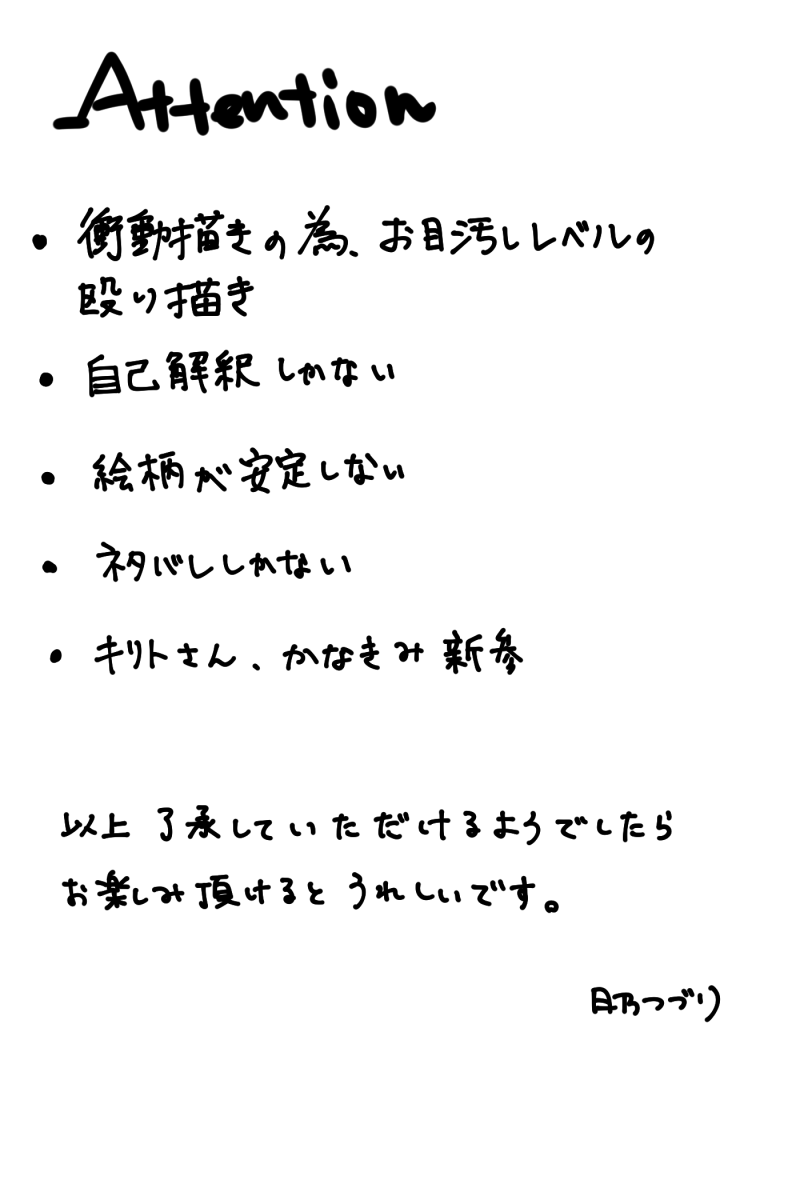 Attention
・衝動描きの為、お目汚しレベルの
殴り描き
・自己解釈しかない
・絵柄が安定しない
・ネタバレしかない
・キリトさん、かなきみ新参
以上 了承していただけるようでしたら
お楽しみ頂けるとうれしいです。
日乃つづり